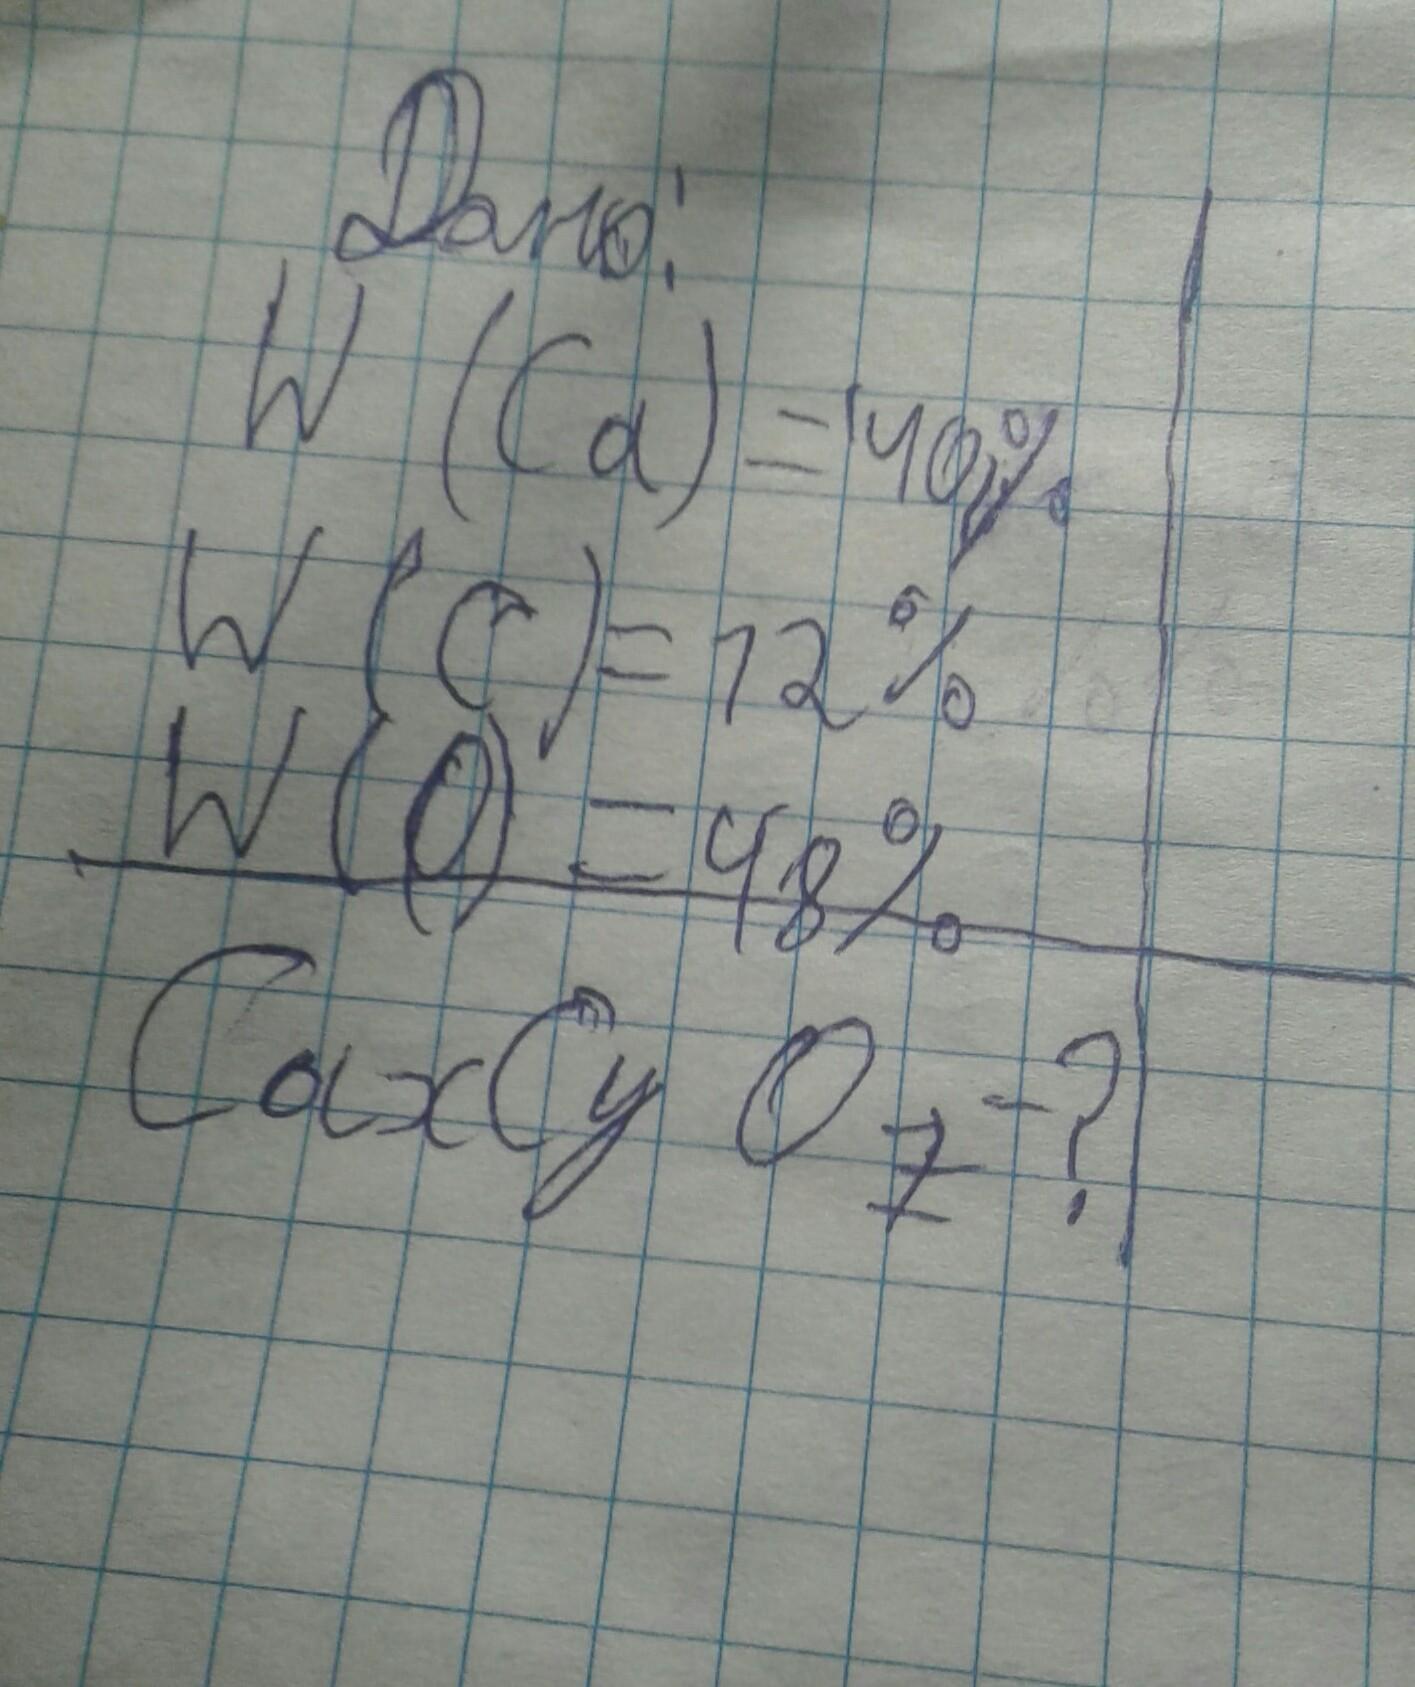 Дано:
W (Ca) = 40%
W (C) = 12%
W (O) = 48%
CaxCyOz - ?